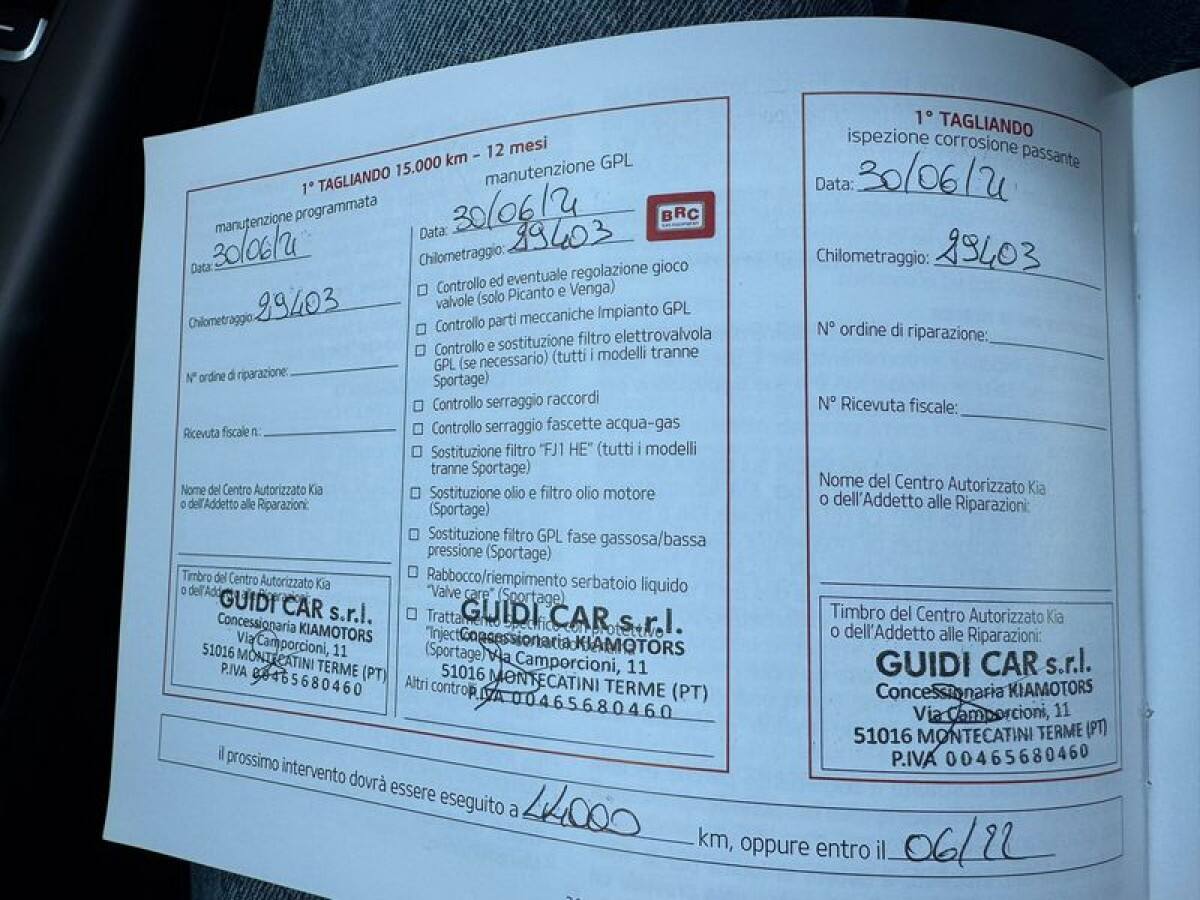 1° TAGLIANDO 15.000 km - 12 mesi
manutenzione programmata
Data: 30/06/21
Chilometraggio: 29403
N° ordine di riparazione:
Ricevuta fiscale n.:
Nome del Centro Autorizzato Kia
o dell'Addetto alle Riparazioni:
Timbro del Centro Autorizzato Kia
o dell'Addetto alle Riparazioni:
GUIDI CAR s.r.l.
Concessionaria KIAMOTORS
Via Camporcioni, 11
51016 MONTECATINI TERME (PT)
P.IVA 00465680460
manutenzione GPL
Data: 30/06/21
BRC
Chilometraggio: 29403
Controllo ed eventuale regolazione gioco
valvole (solo Picanto e Venga)
Controllo parti meccaniche Impianto GPL
Controllo e sostituzione filtro elettrovalvola
GPL (se necessario) (tutti i modelli tranne
Sportage)
Controllo serraggio raccordi
Controllo serraggio fascette acqua-gas
Sostituzione filtro "FJ1 HE" (tutti i modelli
tranne Sportage)
Sostituzione olio e filtro olio motore
(Sportage)
Sostituzione filtro GPL fase gassosa/bassa
pressione (Sportage)
Rabbocco/riempimento serbatoio liquido
"Valve care" (Sportage)
Trattamento specifico con protettivo
(Sportage)
Altri controlli
GUIDI CAR s.r.l.
Concessionaria KIAMOTORS
Via Camporcioni, 11
51016 MONTECATINI TERME (PT)
P.IVA 00465680460
1° TAGLIANDO
ispezione corrosione passante
Data: 30/06/21
Chilometraggio: 29403
N° ordine di riparazione:
N° Ricevuta fiscale:
Nome del Centro Autorizzato Kia
o dell'Addetto alle Riparazioni:
Timbro del Centro Autorizzato Kia
o dell'Addetto alle Riparazioni:
GUIDI CAR s.r.l.
Concessionaria KIAMOTORS
Via Camporcioni, 11
51016 MONTECATINI TERME (PT)
P.IVA 00465680460
il prossimo intervento dovrà essere eseguito a 44000 km, oppure entro il 06/22